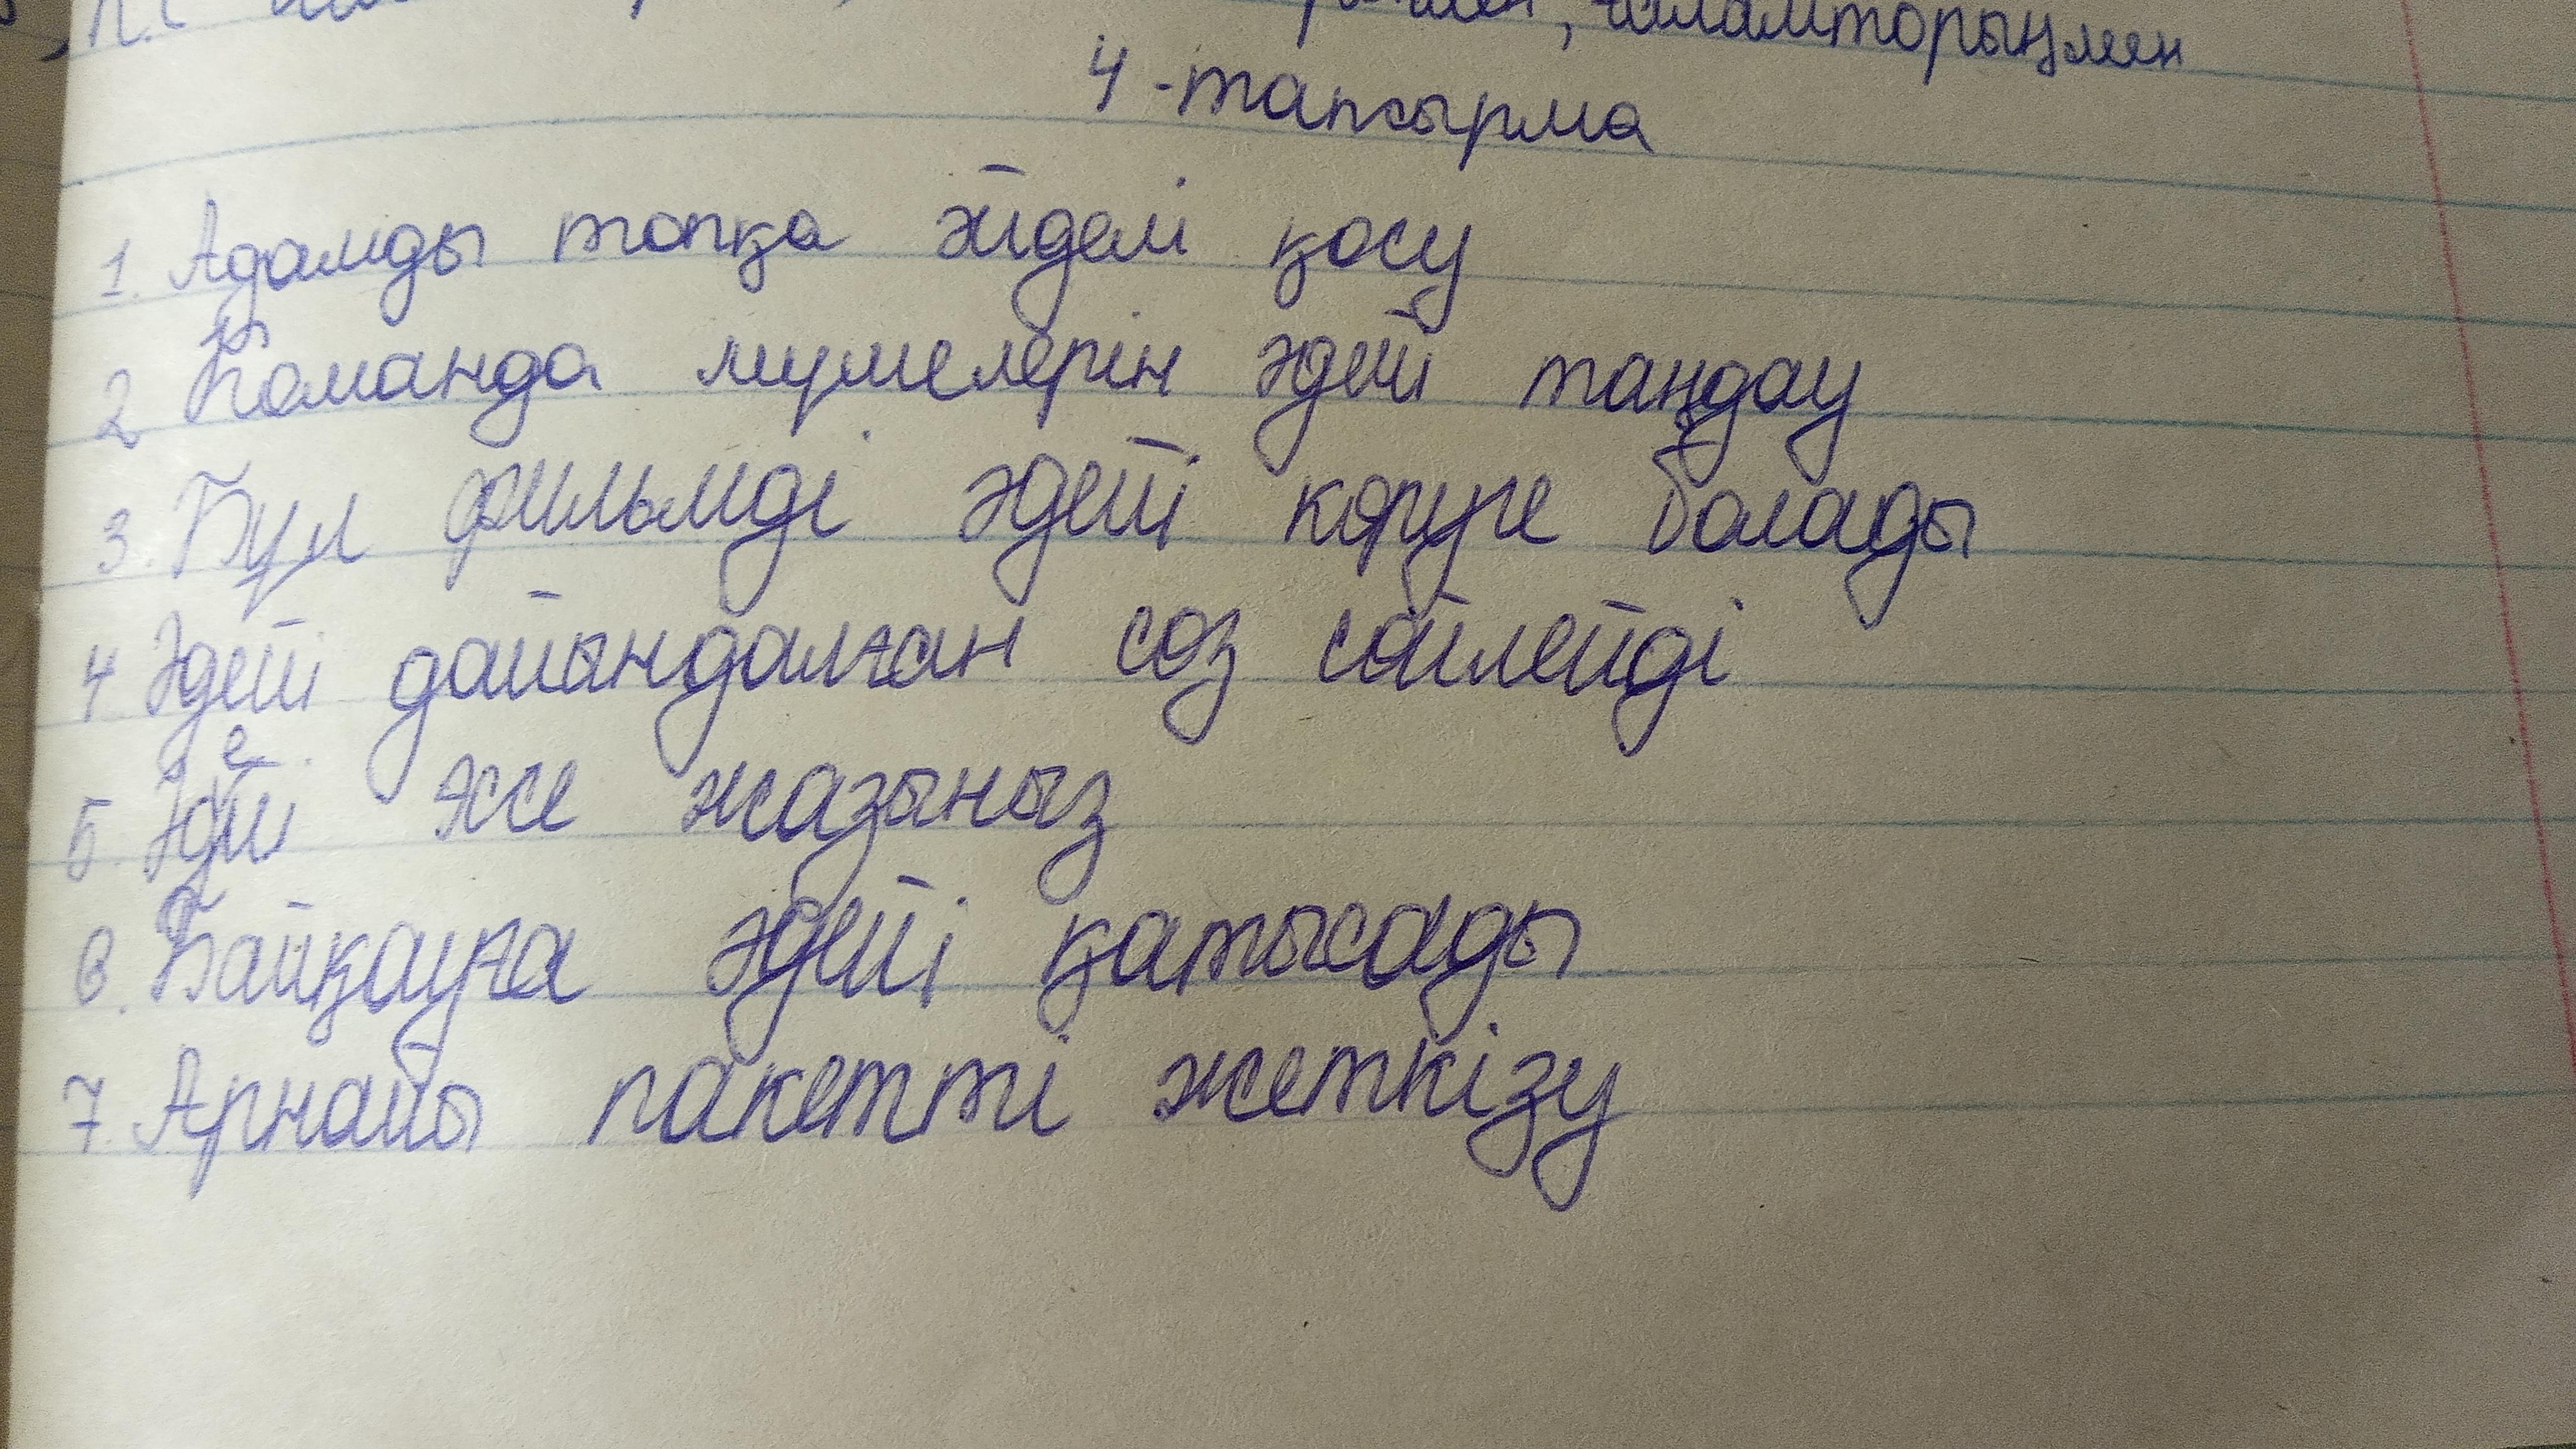 ғаламторыңмен
4-тапсырма
1. Адамды топқа әйдеі қосу
2 Команда мүшелерін әдейі таңдау
3. Бұл фильмді әдейі көруге болады
4 Әдейі дайындалған сөз сөйлейді
5. Әдейі же жазыныз
6. Байқауға әдейі қатысады
7. Арнайы пакетті жеткізу